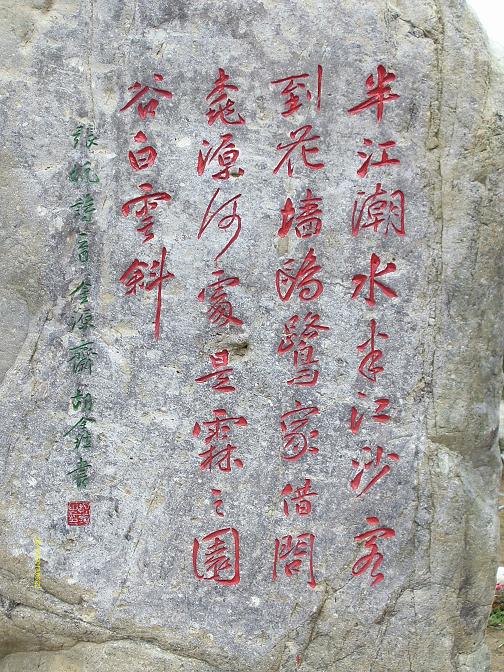 半江潮水半江沙客
到花墙鷗鷺家借問
桃源何處是霖之園
谷白雲斜
張帆詩 金源齋胡鑫書